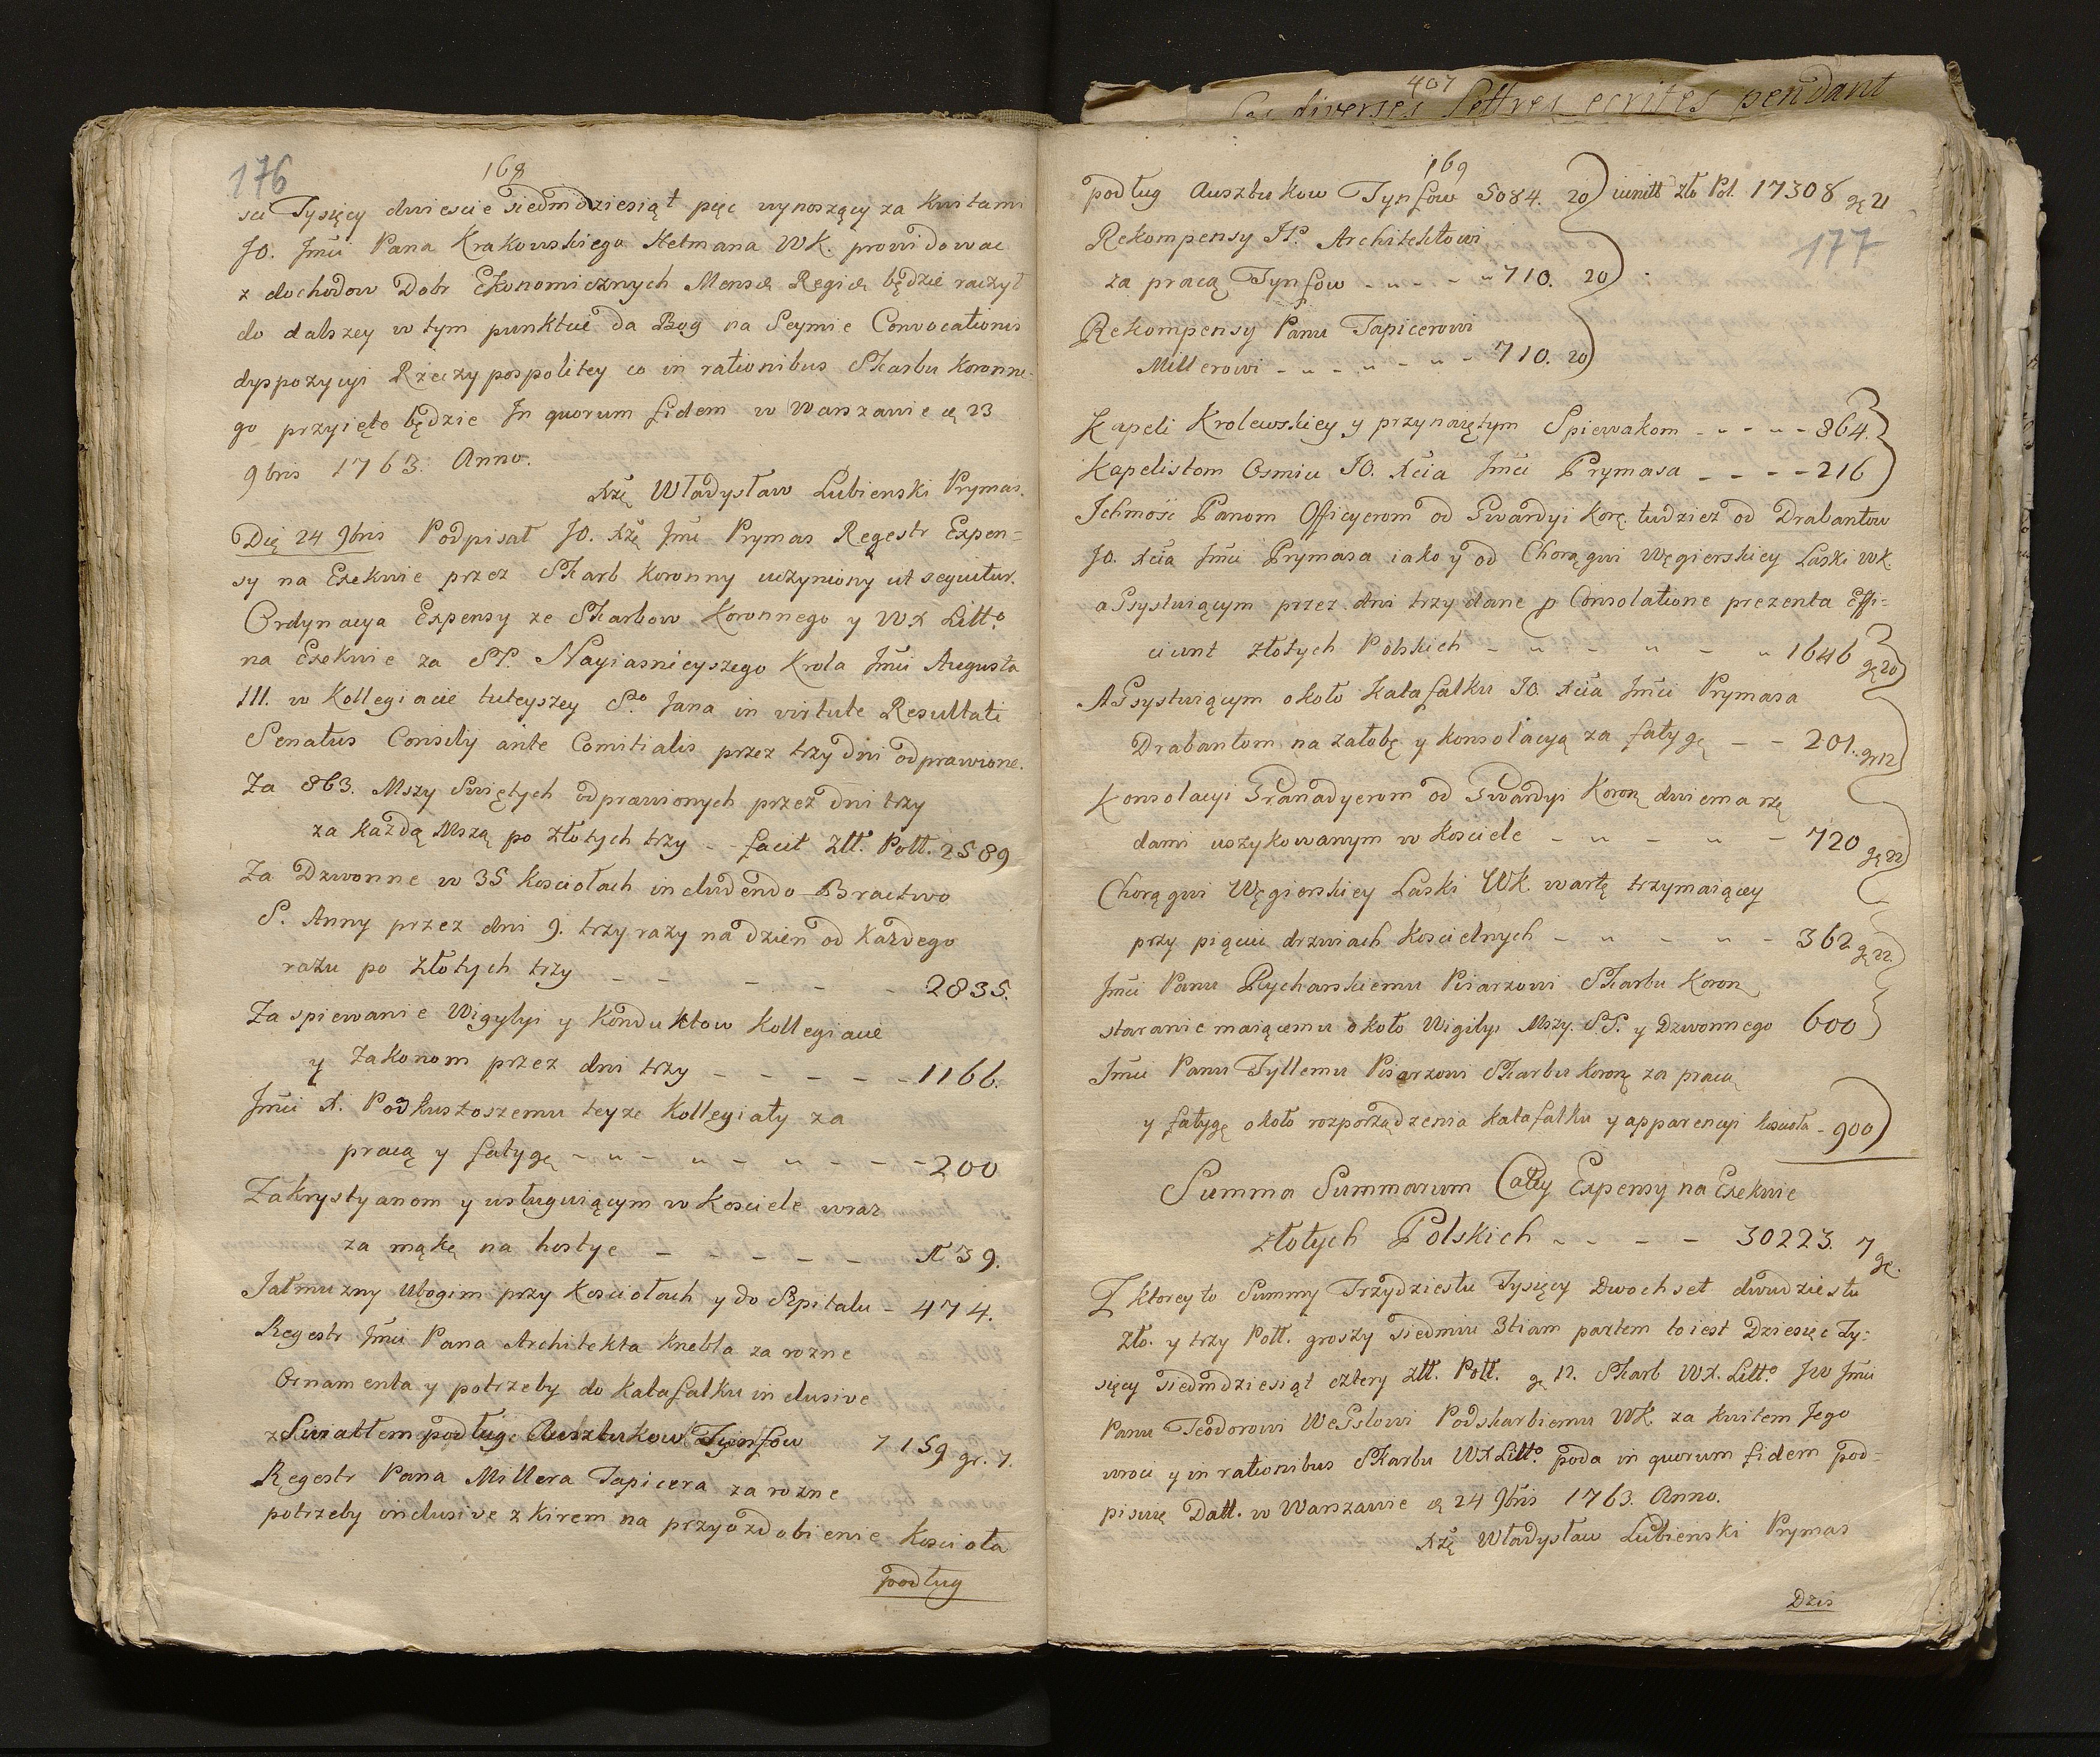 176
168
sci Tysięcy dwiescie siedmdziesiąt pięc wynoszący za kwitami
JO. Jmci Pana Krakowskiego Hetmana WK. prowidowac
z dochodow Dobr Ekonomicznych Mensæ Regiæ będzie raczył
do dalszey w tym punktcie da Bog na Seymie Convocationis
dyspozycyi Rzeczypospolitey co in rationibus Skarbu Koronne-
go przyięte będzie In quorum fidem w Warszawie 23
9bris 1763. Anno.
Xżę Władysław Lubienski Prymas.
Die 24 9bris Podpisał JO. Xżę Jmc Prymas Regestr Expen=
sy na Exekwie przez Skarb Koronny uczyniony ut sequitur.
Ordynacya Expensy ze Skarbow Koronnego y WX Litt.o
na Exekwie za SP. Nayiasnieyszego Krola Jmci Augusta
III. w Kollegiacie tuteyszey S.o Jana in virtute Resultati
Senatus Consilij ante Comitialis przez trzy dni odprawione.
Za 863. Mszy Swiętych odprawionych przez dni trzy
za każdą Mszą po złotych trzy - - facit Złł. Poll. 2589
Za Dzwonne w 35 kosciołach includendo Bractwo
S. Anny przez dni 9. trzy razy na dzien od każdego
razu po złotych trzy - - - - - 2835.
Za spiewanie Wigylyi y Konduktow Kollegiacie
y Zakonom przez dni trzy - - - - - 1166.
Jmci X. Podkustoszemu teyze Kollegiaty za
pracą y fatygę - - - - - - - 200
Zakrystyanom y usługuiącym w Kosciele wraz
za mąkę na hostye - - - - - 39.
Jałmuzny Ubogim przy Kosciołach y do Szpitalu - 474.
Regestr Jmci Pana Architekta Knebla za rozne
Ornamenta y potrzeby do Katafalku inclusive
z Swiatłem podług Auszbukow Tynfow 7159 gr. 7.
Regestr Pana Millera Tapicera za rozne
potrzeby inclusive z kirem na przyozdobienie Kosciola
podług
407
diverses Lettres ecrites pendant
169
podług Auszbukow Tynfow 5084. 20 iunctt zło Pol. 17308 gr 21
177
Rekompensy JP. Architektowi
za pracą Tynfow - - - - 710. 20
Rekompensy Panu Tapicerowi
Millerowi - - - - - 710. 20
Kapeli Krolewskiey y przynaiętym Spiewakom - - - - 864.
Kapelistom Osmiu JO. Xcia Jmci Prymasa - - - - 216
Ichmość Panom Officyerom od Gwardyi Kor. tudziez od Drabantow
JO. Xcia Jmci Prymasa iako y od Chorągwi Węgierskiey Laski WK.
assystuiącym przez dni trzy dane p Consolatione prezenta Effi=
ciunt złotych Polskich - - - - - 1646 gr 20
Assystuiącym około Katafalku JO. Xcia Jmci Prymasa
Drabantom na załobę y konsolacyą za fatygę - - 201. gr 12
Konsolacyi Granadyerom od Gwardyi Koron dwiema rzę
dami uszykowanym w kosciele - - - - - 720 gr 22
Chorągwi Węgierskiey Laski WK. wartę trzymaiącey
przy pięciu drzwiach Koscielnych - - - - - 362 gr 22.
Jmci Panu Rycharskiemu Pisarzowi Skarbu Koron
staranie maiącemu około Wigilyi Mszy. S.S. y Dzwonnego 600
Jmci Panu Tyllemu Pisarzowi Skarbu Koron za pracą
y fatygę około rozporządzenia katafalku y apparencyi kosciola - 900
Summa Summarum Całey Expensy na Exekwie
złotych Polskich - - - - 30223. 7 gr.
Z ktorey to Summy Trzydziestu Tysięcy Dwochset dwudziestu
zło. y trzy Poll. groszy siedmiu 3tiam partem to iest Dziesięc Ty=
sięcy siedmdziesiąt cztery złł. Poll. gr 12. Skarb WX. Litt.o JW Jmci
Panu Teodorowi Wesslowi Podskarbiemu WK. za kwitem Jego
wroci y in rationibus Skarbu WXLitt.o poda in quorum fidem pod=
pisuię Datt. w Warszawie 24 9bris 1763. Anno.
Xżę Władysław Lubienski Prymas
Dzis